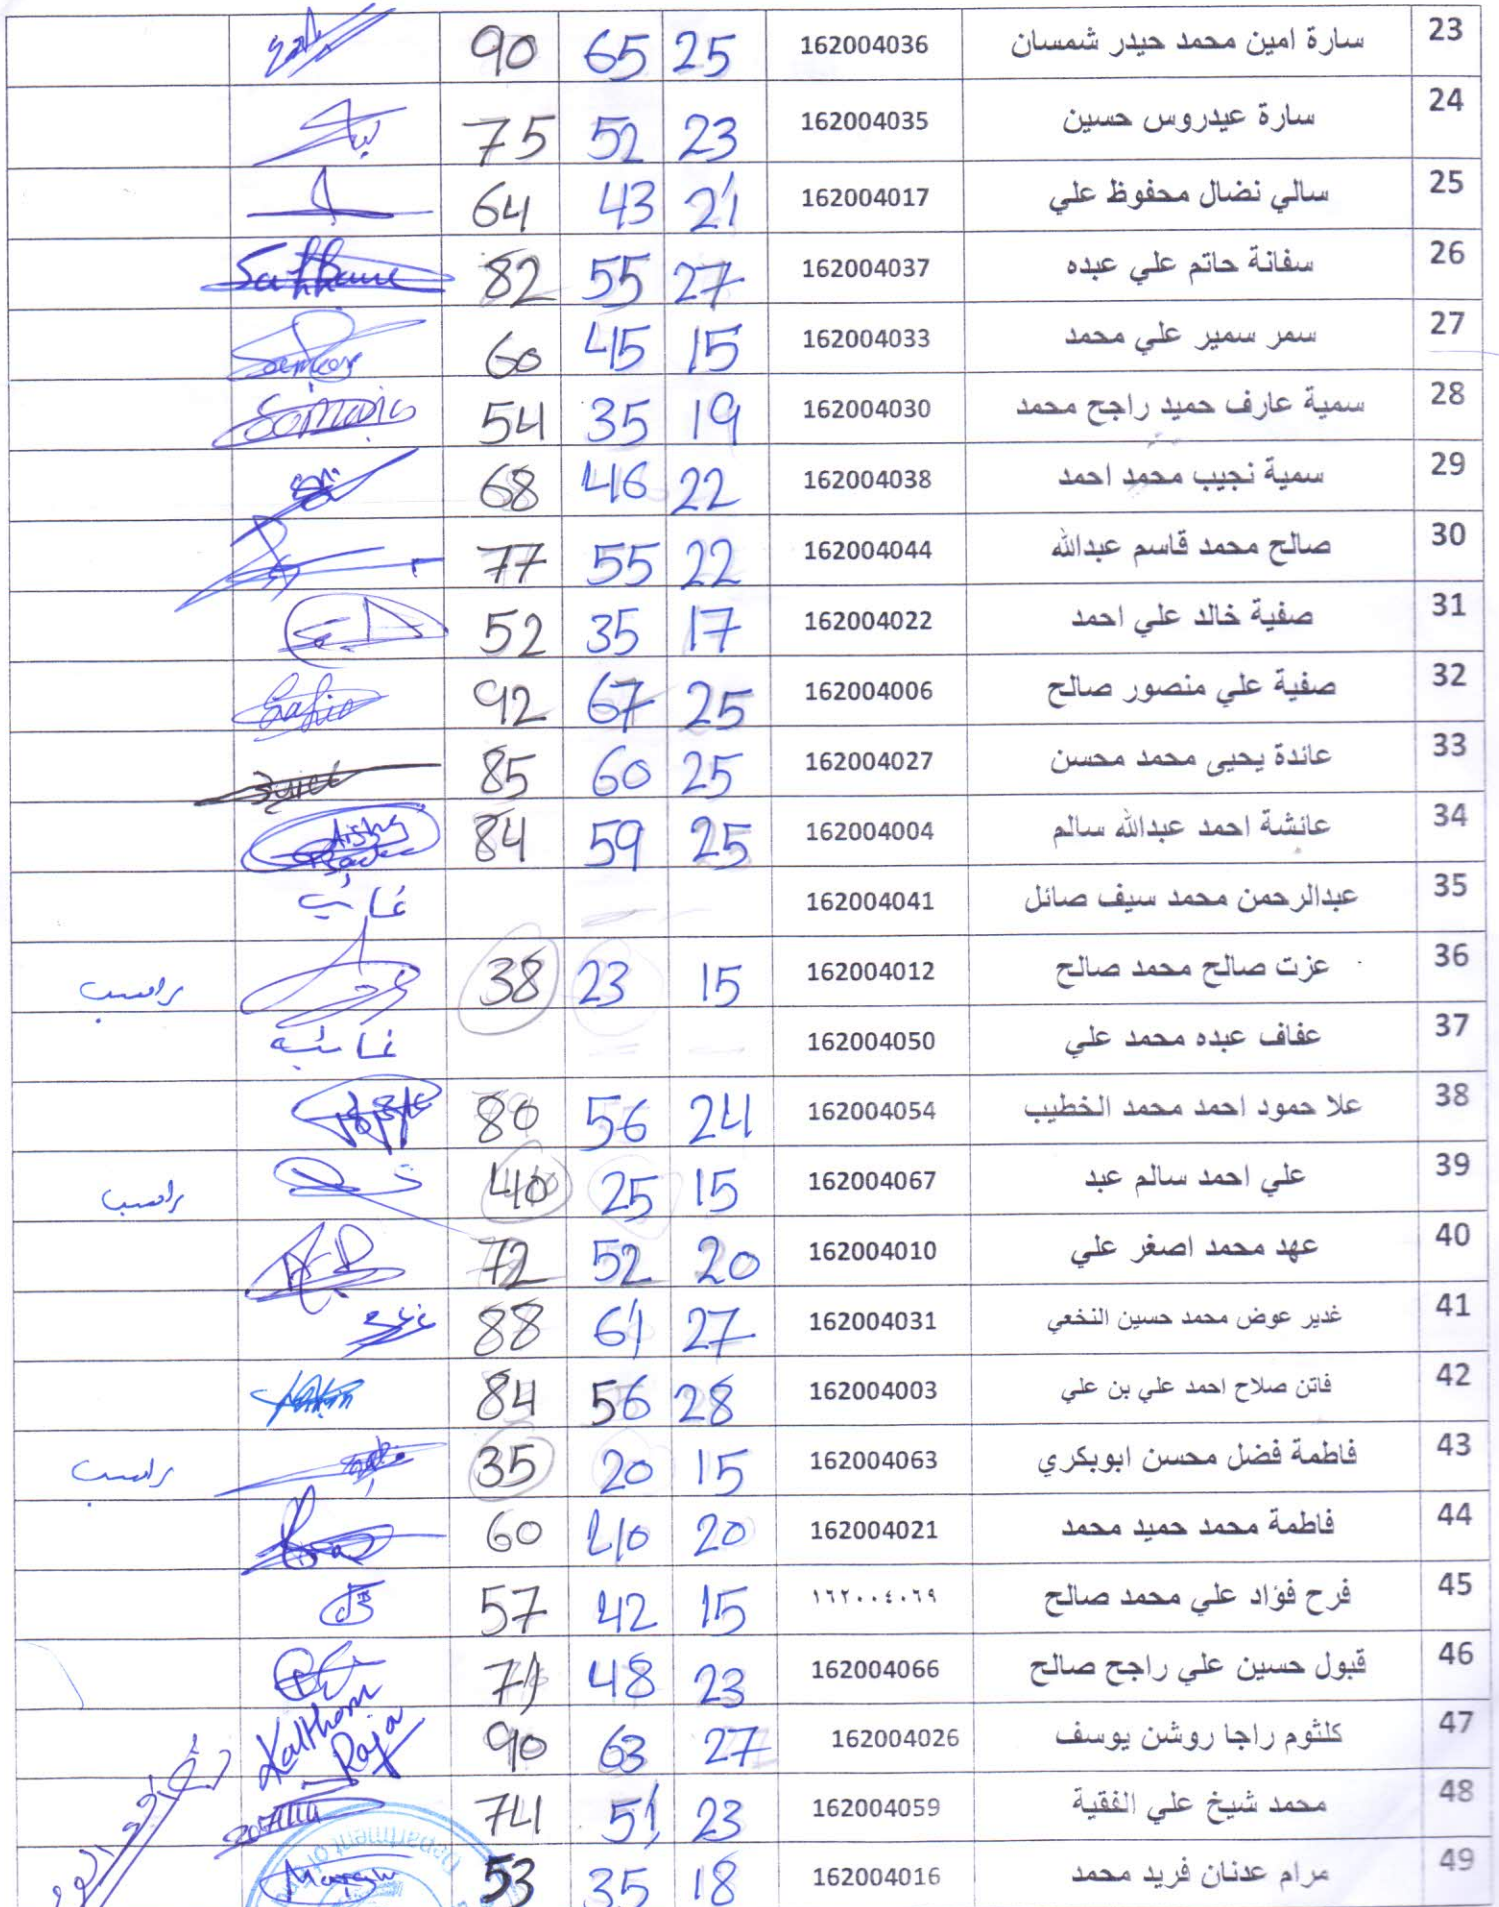 23 سارة امين محمد حيدر شمسان 162004036 25 65 90
24 سارة عيدروس حسين 162004035 23 52 75
25 سالي نضال محفوظ علي 162004017 21 43 64
26 سفانة حاتم علي عبده 162004037 27 55 82
27 سمر سمير علي محمد 162004033 15 45 60
28 سمية عارف حميد راجح محمد 162004030 19 35 54
29 سمية نجيب محمد احمد 162004038 22 46 68
30 صالح محمد قاسم عبدالله 162004044 22 55 77
31 صفية خالد علي احمد 162004022 17 35 52
32 صفية علي منصور صالح 162004006 25 67 92 Safia
33 عائدة يحيى محمد محسن 162004027 25 60 85
34 عائشة احمد عبدالله سالم 162004004 25 59 84
35 عبدالرحمن محمد سيف صائل 162004041 غائب
36 عزت صالح محمد صالح 162004012 15 23 38 راسب
37 عفاف عبده محمد علي 162004050 غائبه
38 علا حمود احمد محمد الخطيب 162004054 24 56 80
39 علي احمد سالم عبد 162004067 15 25 40 راسب
40 عهد محمد اصغر علي 162004010 20 52 72
41 غدير عوض محمد حسين النخعي 162004031 27 61 88
42 فاتن صلاح احمد علي بن علي 162004003 28 56 84
43 فاطمة فضل محسن ابوبكري 162004063 15 20 35 راسب
44 فاطمة محمد حميد محمد 162004021 20 40 60
45 فرح فؤاد علي محمد صالح ١٦٢٠٠٤٠٦٩ 15 42 57
46 قبول حسين علي راجح صالح 162004066 23 48 71
47 كلثوم راجا روشن يوسف 162004026 27 63 90 Kalthom Raja
48 محمد شيخ علي الفقية 162004059 23 51 74
49 مرام عدنان فريد محمد 162004016 18 35 53
Department of